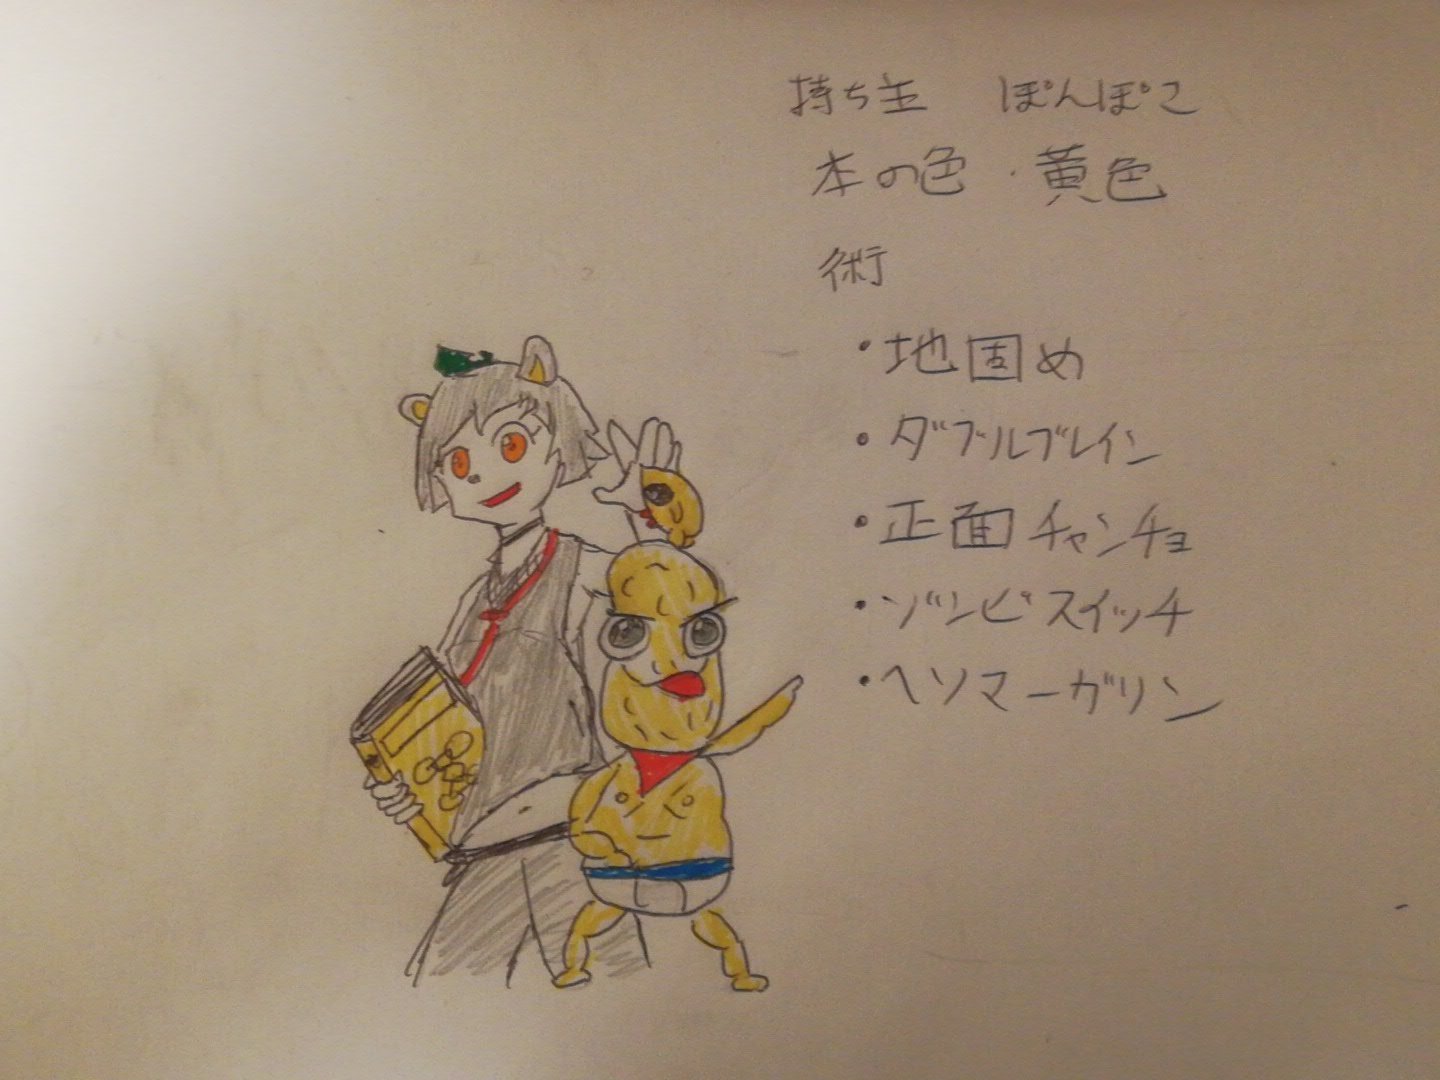 持ち主 ぽんぽこ
本の色・黄色
術
・地固め
・ダブルブレイン
・正面チャンチョ
・ゾンビスイッチ
・ヘソマーガリン